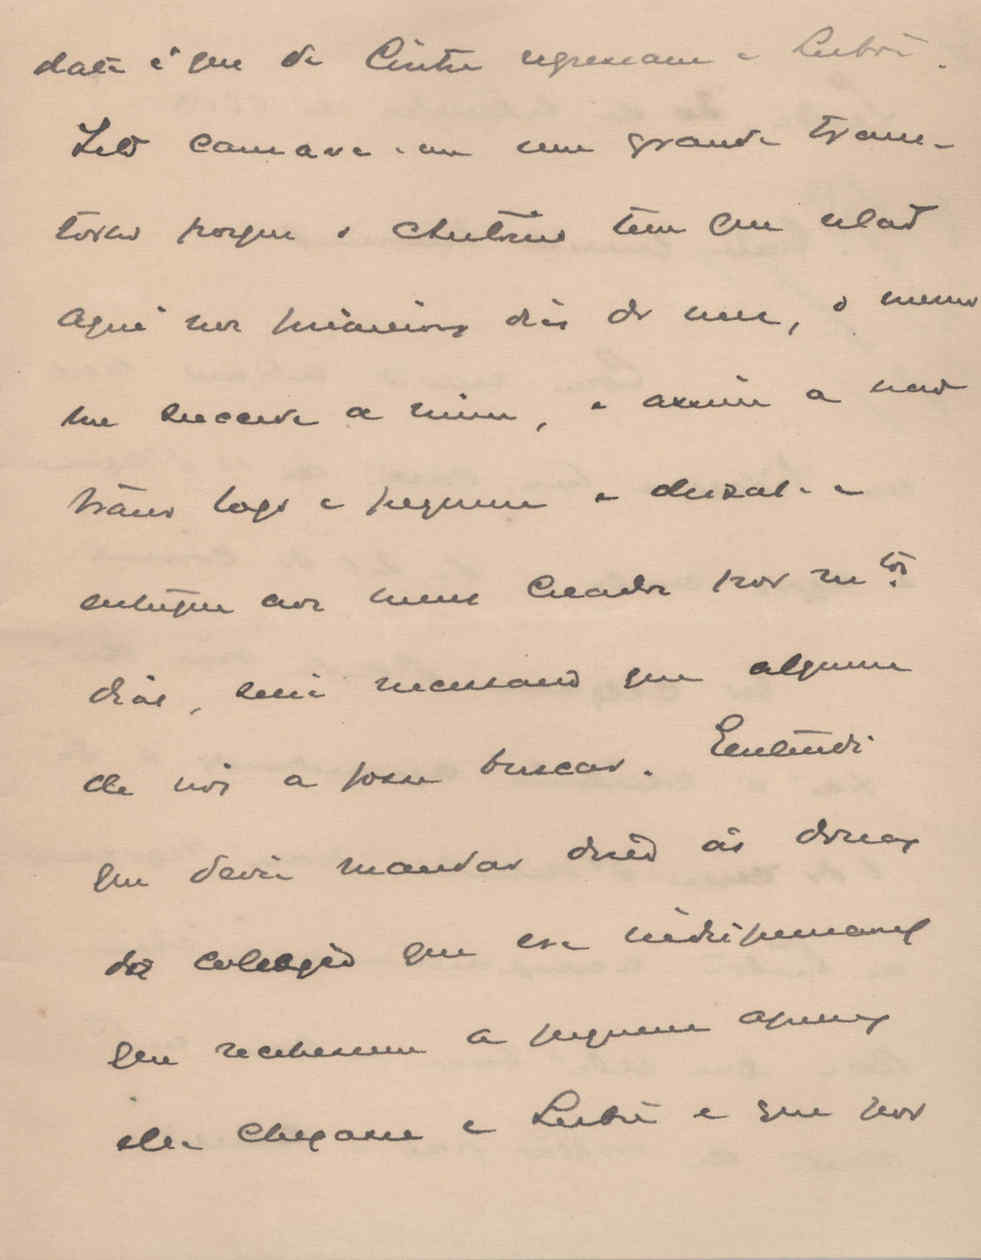 data é que de Cintra regressam a Lisboa.
Isto causava-me um grande trans-
torno porque o Antonio tem que estar
aqui nos primeiros dias do mez, o mesmo
me succede a mim, e assim a não
trazer logo a pequena e deixal-a
entregue aos meus creados por uns
dias, seria necessario que algum
de nós a fosse buscar. Entendi
que devia mandar dizer ás donas
do collegio que era indispensavel
que recebessem a pequena apenas
ella chegasse a Lisboa e que nos